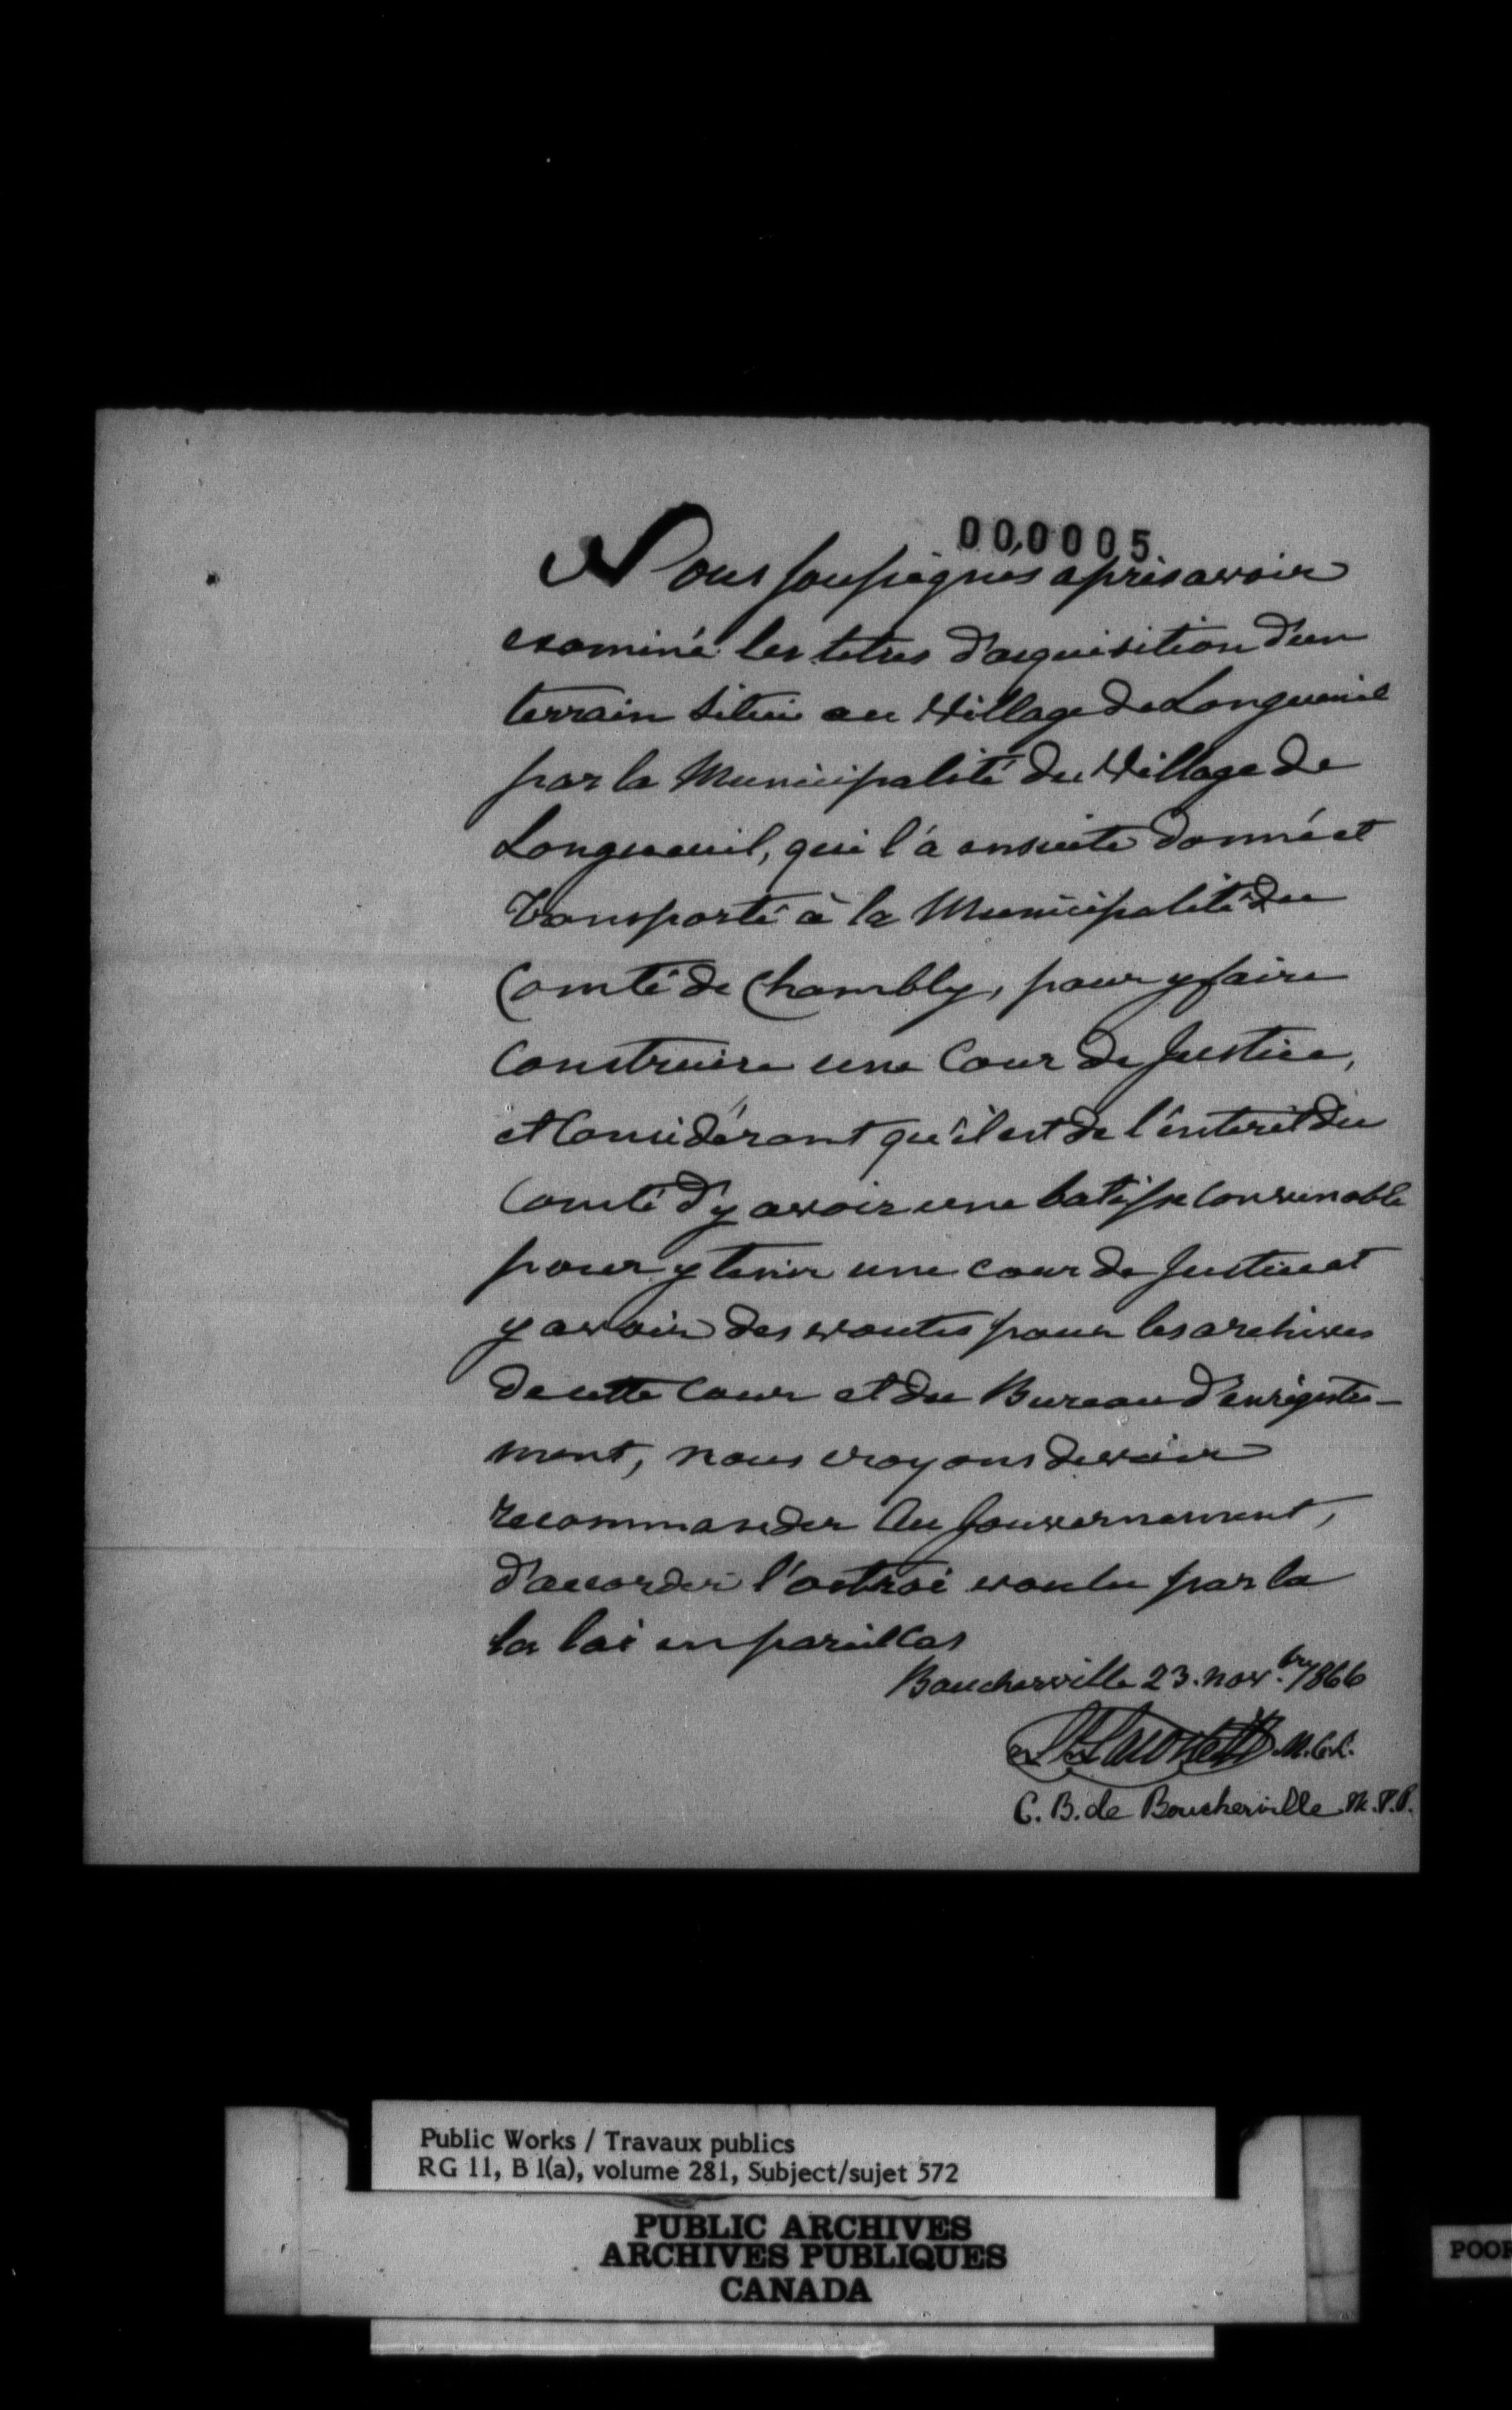 000005
Nous soussignés après avoir
examiné les titres d'acquisition d'un
terrain situé au Village de Longueuil
par la Municipalité du Village de
Longueuil, qui l'a ensuite donné et
transporté à la Municipalité du
Comté de Chambly, pour y faire
construire une Cour de Justice,
et Considérant qu'il est de l'interêt du
Comté d'y avoir une batisse Convenable
pour y tenir une cour de Justice et
y avoir des voutes pour les archives
de cette Cour et du Bureau d'enrégistre-
ment, nous croyons devoir
recommander Au Gouvernement,
d'accorder l'octroi voulu par la
la loi en pareil Cas
Boucherville 23. nov.bre 1866
M.C.L.
C. B. de Boucherville M.P.P.
Public Works / Travaux publics
RG 11, B 1(a), volume 281, Subject/sujet 572
PUBLIC ARCHIVES
ARCHIVES PUBLIQUES
CANADA